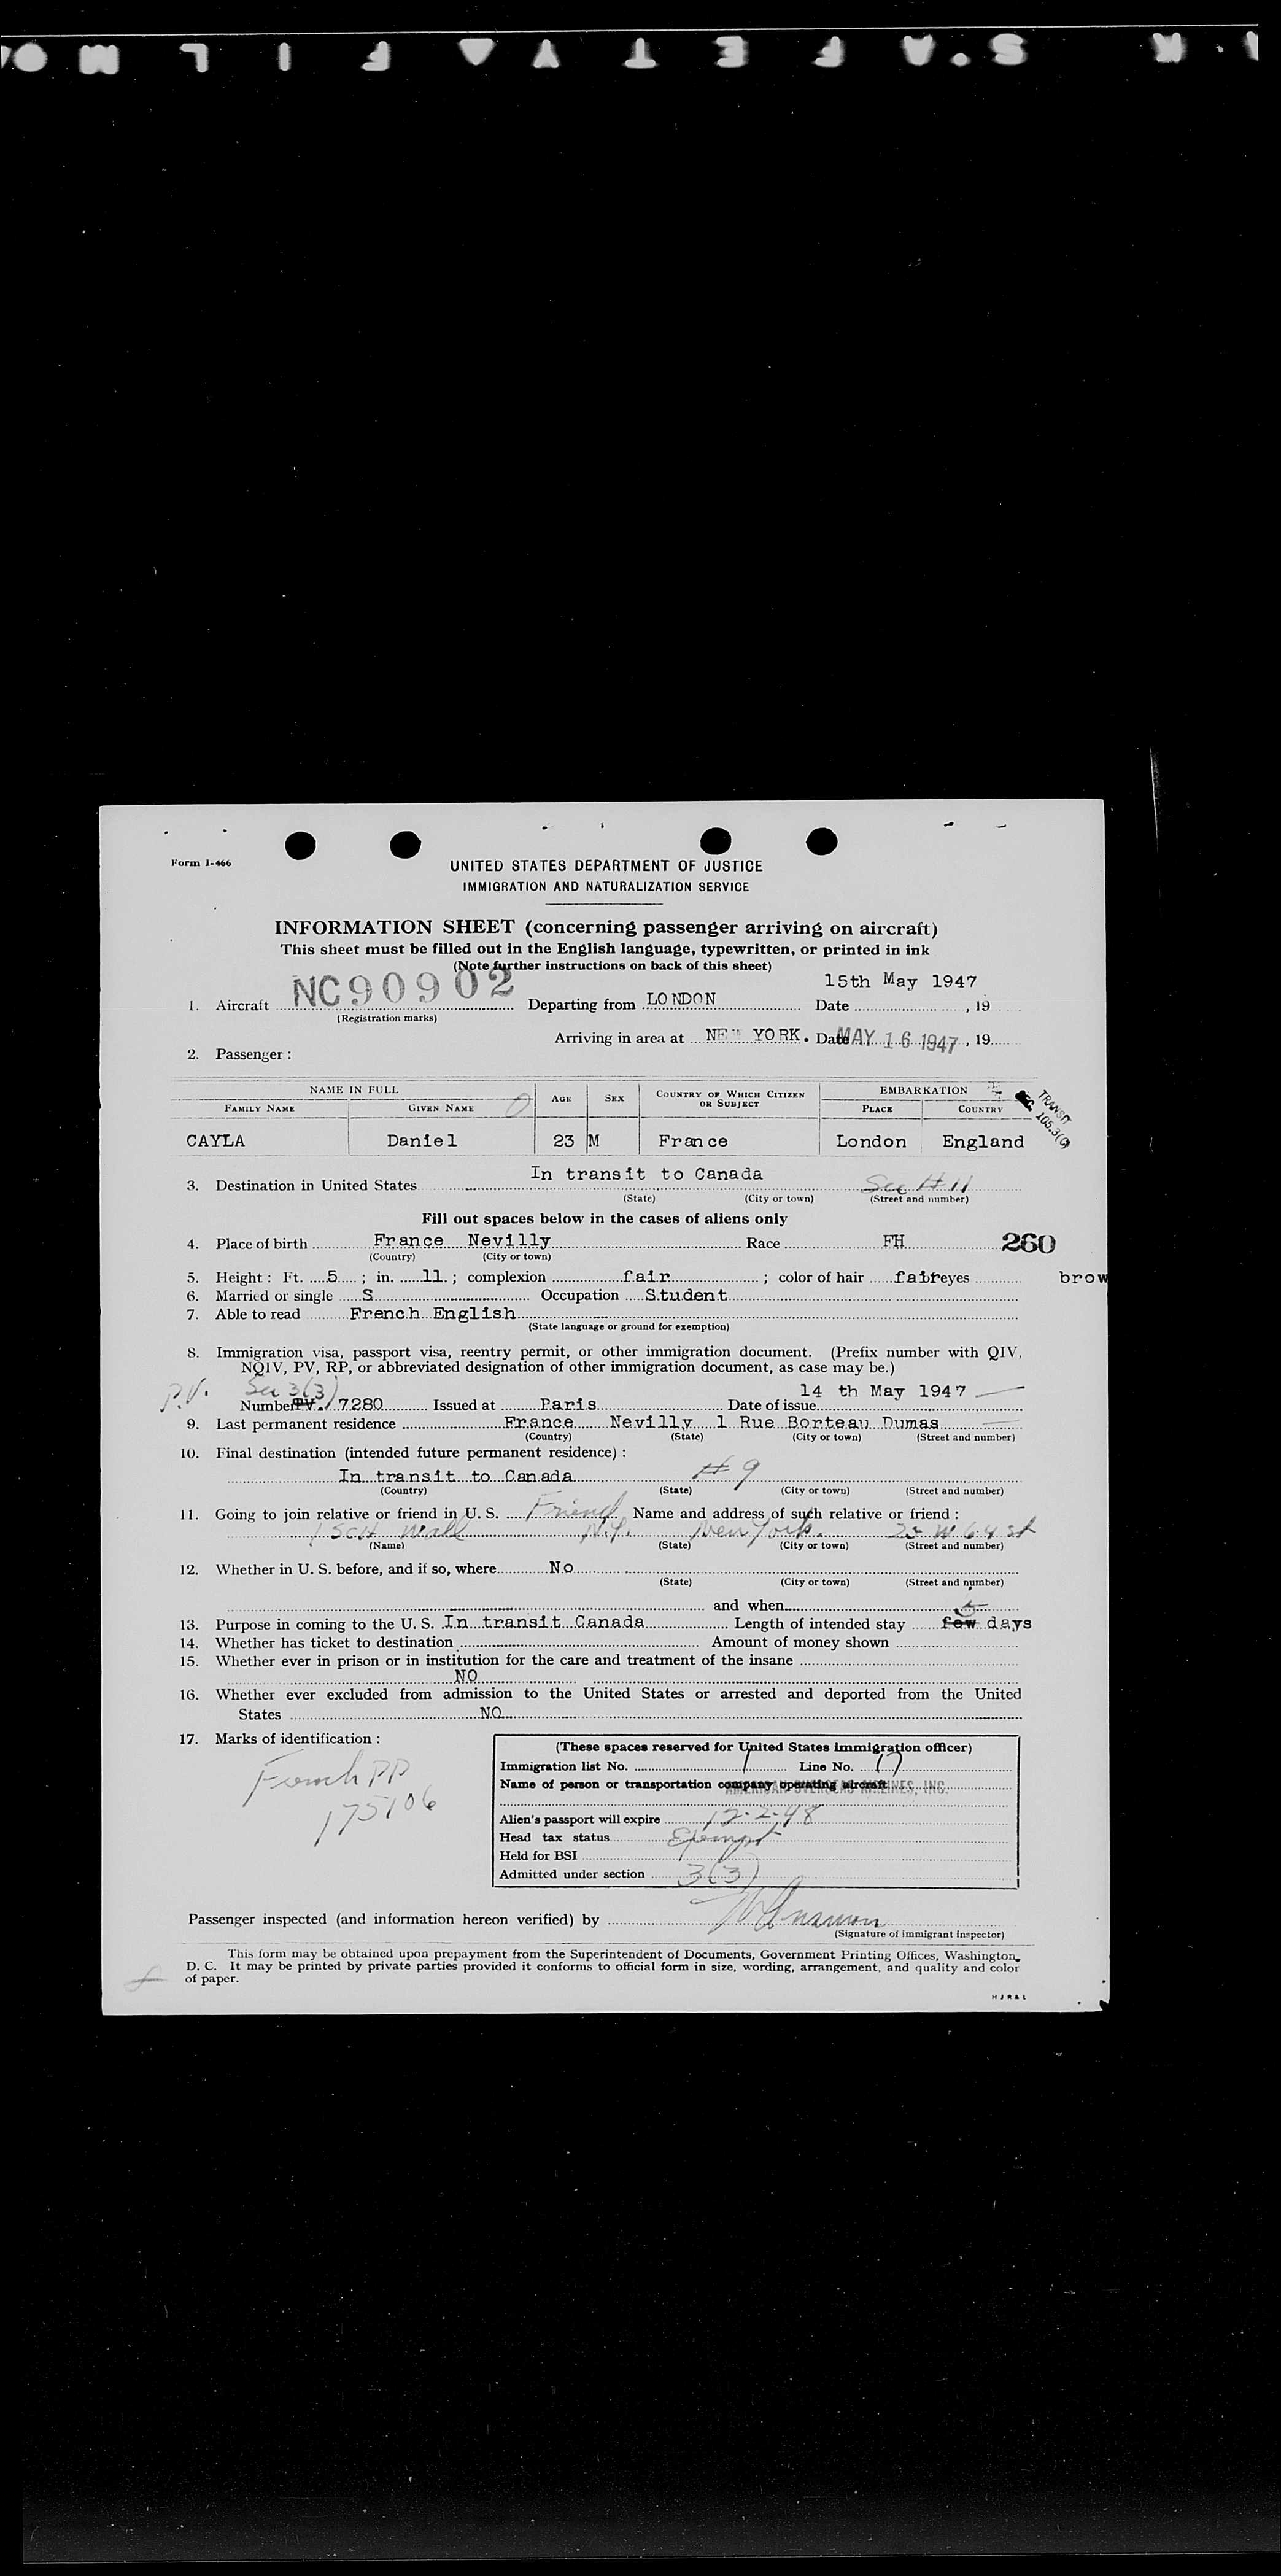 U.S. SAFETY FILM
Form I-466
UNITED STATES DEPARTMENT OF JUSTICE
IMMIGRATION AND NATURALIZATION SERVICE
INFORMATION SHEET (concerning passenger arriving on aircraft)
This sheet must be filled out in the English language, typewritten, or printed in ink
(Note further instructions on back of this sheet)
15th May 1947
1. Aircraft NC90902 Departing from LONDON Date , 19
(Registration marks)
Arriving in area at NEW YORK. Date MAY 16 1947, 19
2. Passenger:
NAME IN FULL AGE SEX COUNTRY OF WHICH CITIZEN OR SUBJECT EMBARKATION
FAMILY NAME GIVEN NAME PLACE COUNTRY
TRANSIT
SEC. 105.3(c)
CAYLA Daniel 23 M France London England
In transit to Canada
3. Destination in United States See #11
(State) (City or town) (Street and number)
Fill out spaces below in the cases of aliens only
4. Place of birth France Nevilly Race FH 260
(Country) (City or town)
5. Height: Ft. 5; in. 11; complexion fair; color of hair fair eyes brow
6. Married or single S Occupation Student
7. Able to read French English
(State language or ground for exemption)
8. Immigration visa, passport visa, reentry permit, or other immigration document. (Prefix number with QIV,
NQIV, PV, RP, or abbreviated designation of other immigration document, as case may be.)
P.V. Sec 3(3) 14 th May 1947
Number 7280 Issued at Paris Date of issue
9. Last permanent residence France Nevilly 1 Rue Borteau Dumas
(Country) (State) (City or town) (Street and number)
10. Final destination (intended future permanent residence):
In transit to Canada #9
(Country) (State) (City or town) (Street and number)
11. Going to join relative or friend in U. S. Friend Name and address of such relative or friend:
N.Y. New York. 25 W 64 st
(Name) (State) (City or town) (Street and number)
12. Whether in U. S. before, and if so, where No
(State) (City or town) (Street and number)
and when
13. Purpose in coming to the U. S. In transit Canada Length of intended stay few 5 days
14. Whether has ticket to destination Amount of money shown
15. Whether ever in prison or in institution for the care and treatment of the insane
NO
16. Whether ever excluded from admission to the United States or arrested and deported from the United
States NO
17. Marks of identification:
French PP
175106
(These spaces reserved for United States immigration officer)
Immigration list No. 1 Line No. 17
Name of person or transportation company operating aircraft AMERICAN OVERSEAS AIRLINES, INC.
Alien's passport will expire 12-2-48
Head tax status Exempt
Held for BSI
Admitted under section 3(3)
Passenger inspected (and information hereon verified) by
(Signature of immigrant inspector)
This form may be obtained upon prepayment from the Superintendent of Documents, Government Printing Offices, Washington,
D. C. It may be printed by private parties provided it conforms to official form in size, wording, arrangement, and quality and color
of paper.
H J R & L